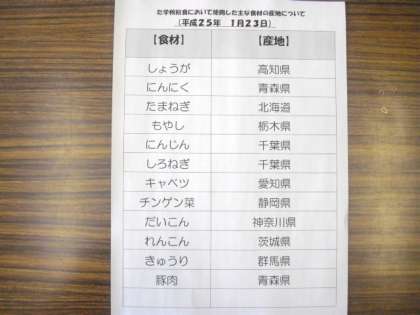 た学校給食において使用した主な食材の産地について
(平成25年 1月23日)
【食材】 【産地】
しょうが 高知県
にんにく 青森県
たまねぎ 北海道
もやし 栃木県
にんじん 千葉県
しろねぎ 千葉県
キャベツ 愛知県
チンゲン菜 静岡県
だいこん 神奈川県
れんこん 茨城県
きゅうり 群馬県
豚肉 青森県